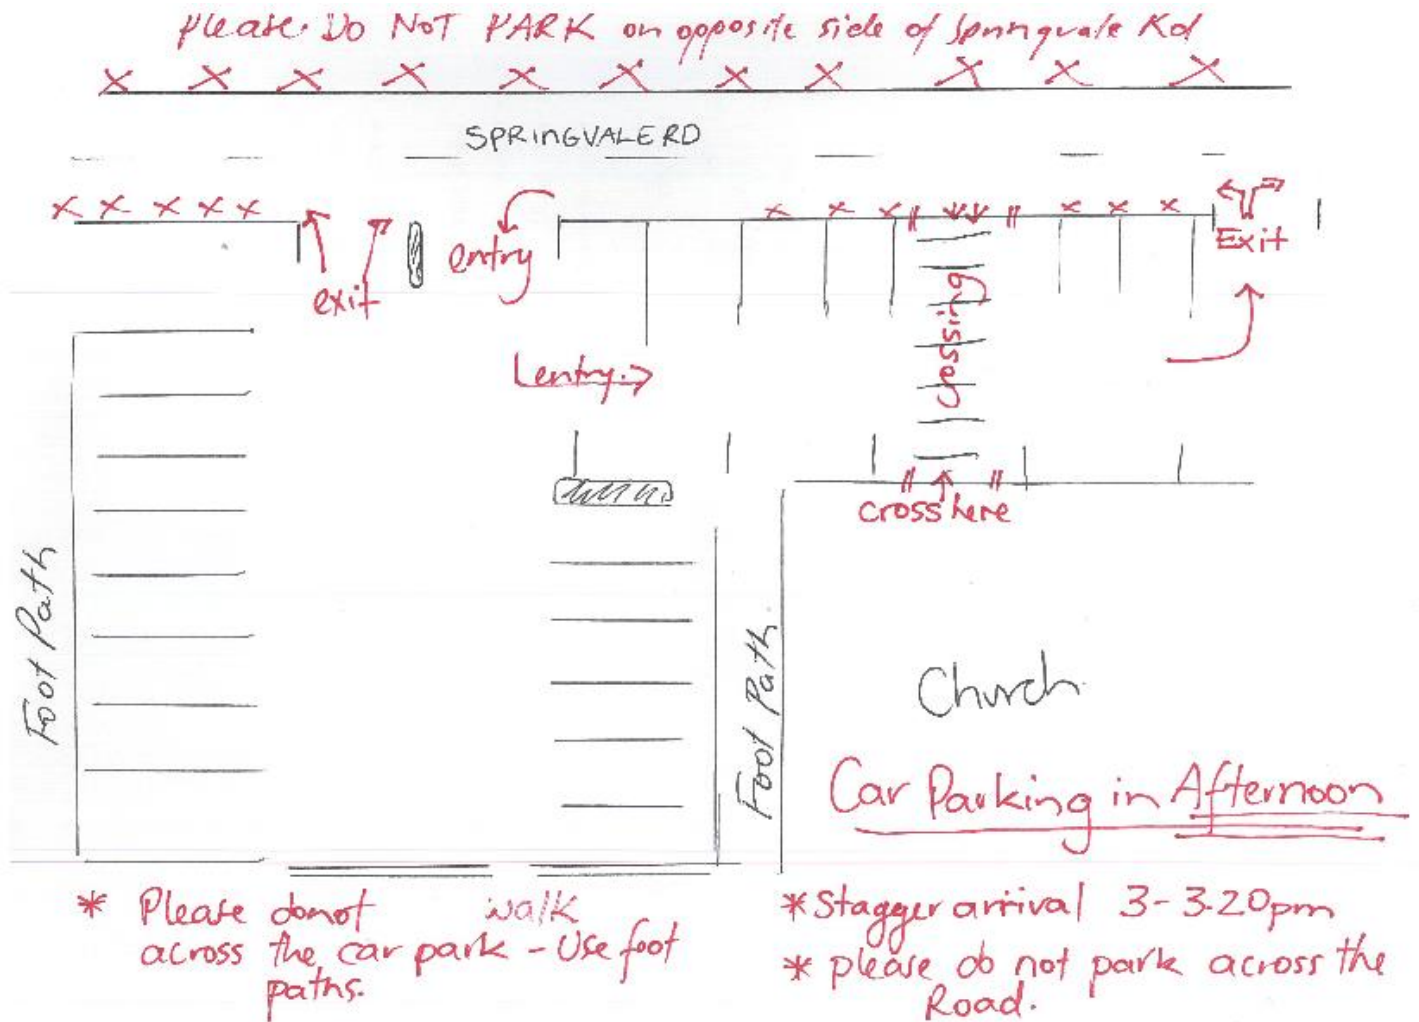 Please DO NOT PARK on opposite side of Springvale Rd
SPRINGVALE RD
entry
exit
Exit
entry
Crossing
cross here
Foot Path
Foot Path
Church
Car Parking in Afternoon
* Please donot walk
across the car park - Use foot
paths.
* Stagger arrival 3-3.20pm
* please do not park across the
Road.